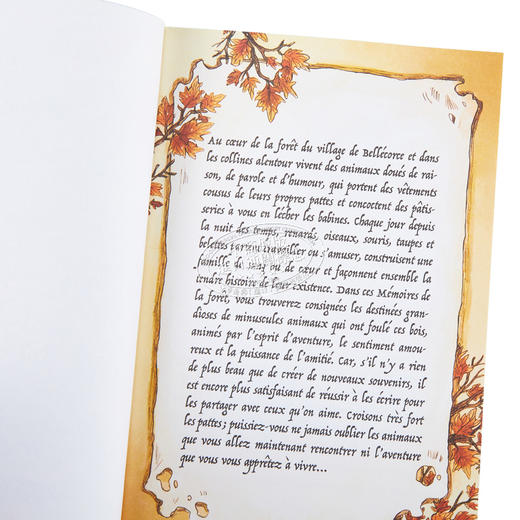 Au cœur de la forêt du village de Bellécorce et dans
les collines alentour vivent des animaux doués de rai-
son, de parole et d'humour, qui portent des vêtements
cousus de leurs propres pattes et concoctent des pâtis-
series à vous en lécher les babines. Chaque jour depuis
la nuit des temps, renards, oiseaux, souris, taupes et
belettes vont travailler ou s'amuser, construisent une
famille de sang ou de cœur et façonnent ensemble la
tendre histoire de leur existence. Dans ces Mémoires de
la forêt, vous trouverez consignées les destinées gran-
dioses de minuscules animaux qui ont foulé ces bois,
animés par l'esprit d'aventure, le sentiment amou-
reux et la puissance de l'amitié. Car, s'il n'y a rien
de plus beau que de créer de nouveaux souvenirs, il
est encore plus satisfaisant de réussir à les écrire pour
les partager avec ceux qu'on aime. Croisons très fort
les pattes ; puissiez-vous ne jamais oublier les animaux
que vous allez maintenant rencontrer ni l'aventure
que vous vous apprêtez à vivre...